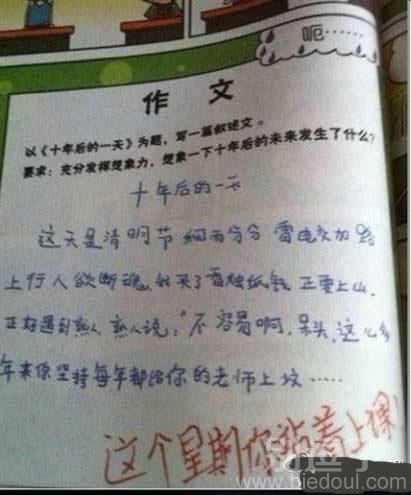 呃……
作 文
以《十年后的一天》为题，写一篇叙述文。
要求：充分发挥想象力，想象一下十年后的未来发生了什么？
十年后的一天
这天是清明节 细雨分分 雷电交加 路
上行人欲断魂，我买了香烛纸钱 正要上山，
正好遇到熟人，熟人说："不容易啊，呆头，这么多
年来你坚持每年都给你的老师上坟……
这个星期你站着上课！
www.biedoul.com